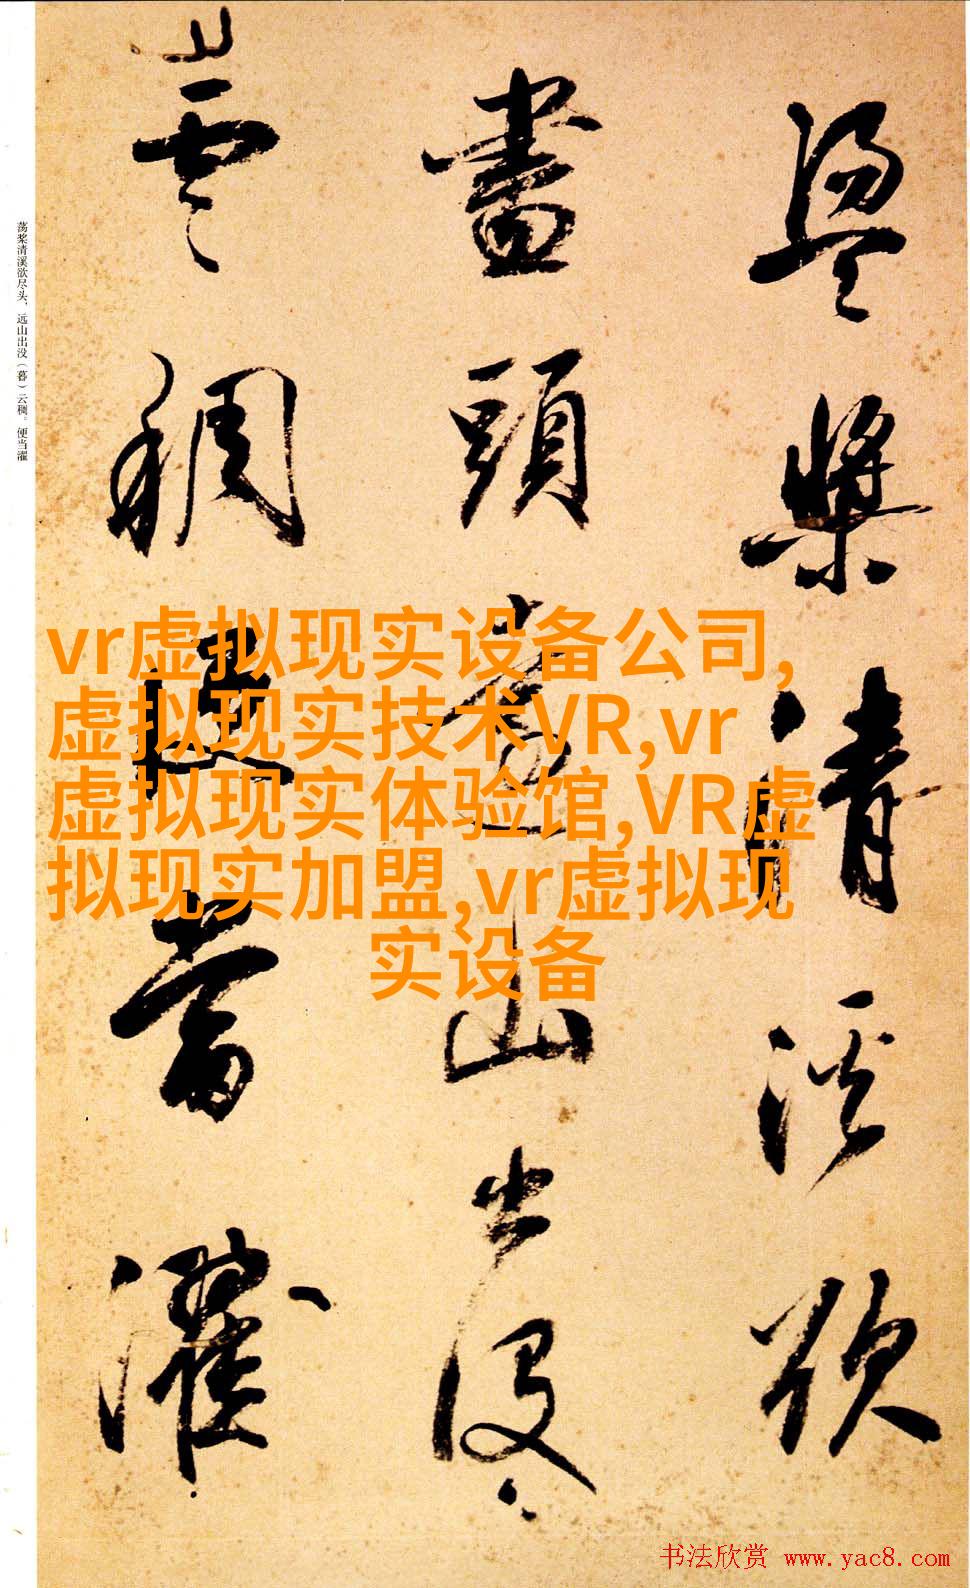 盪槳清溪欲
盡頭遠山出没
雲稠便當濯
荡桨清溪欲尽头，远山出没（暮）云稠。便当濯
vr虚拟现实设备公司,
虚拟现实技术VR,vr
虚拟现实体验馆,VR虚
拟现实加盟,vr虚拟现
实设备
书法欣赏 www.yac8.com